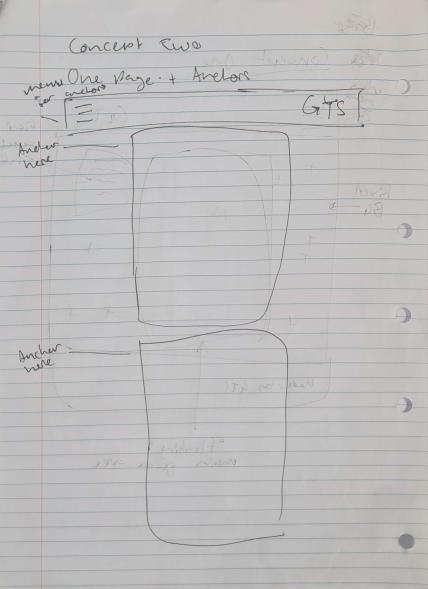 Concept Two
One Page + Anchors
menu
for anchors
GTS
Anchor
here
Anchor
here